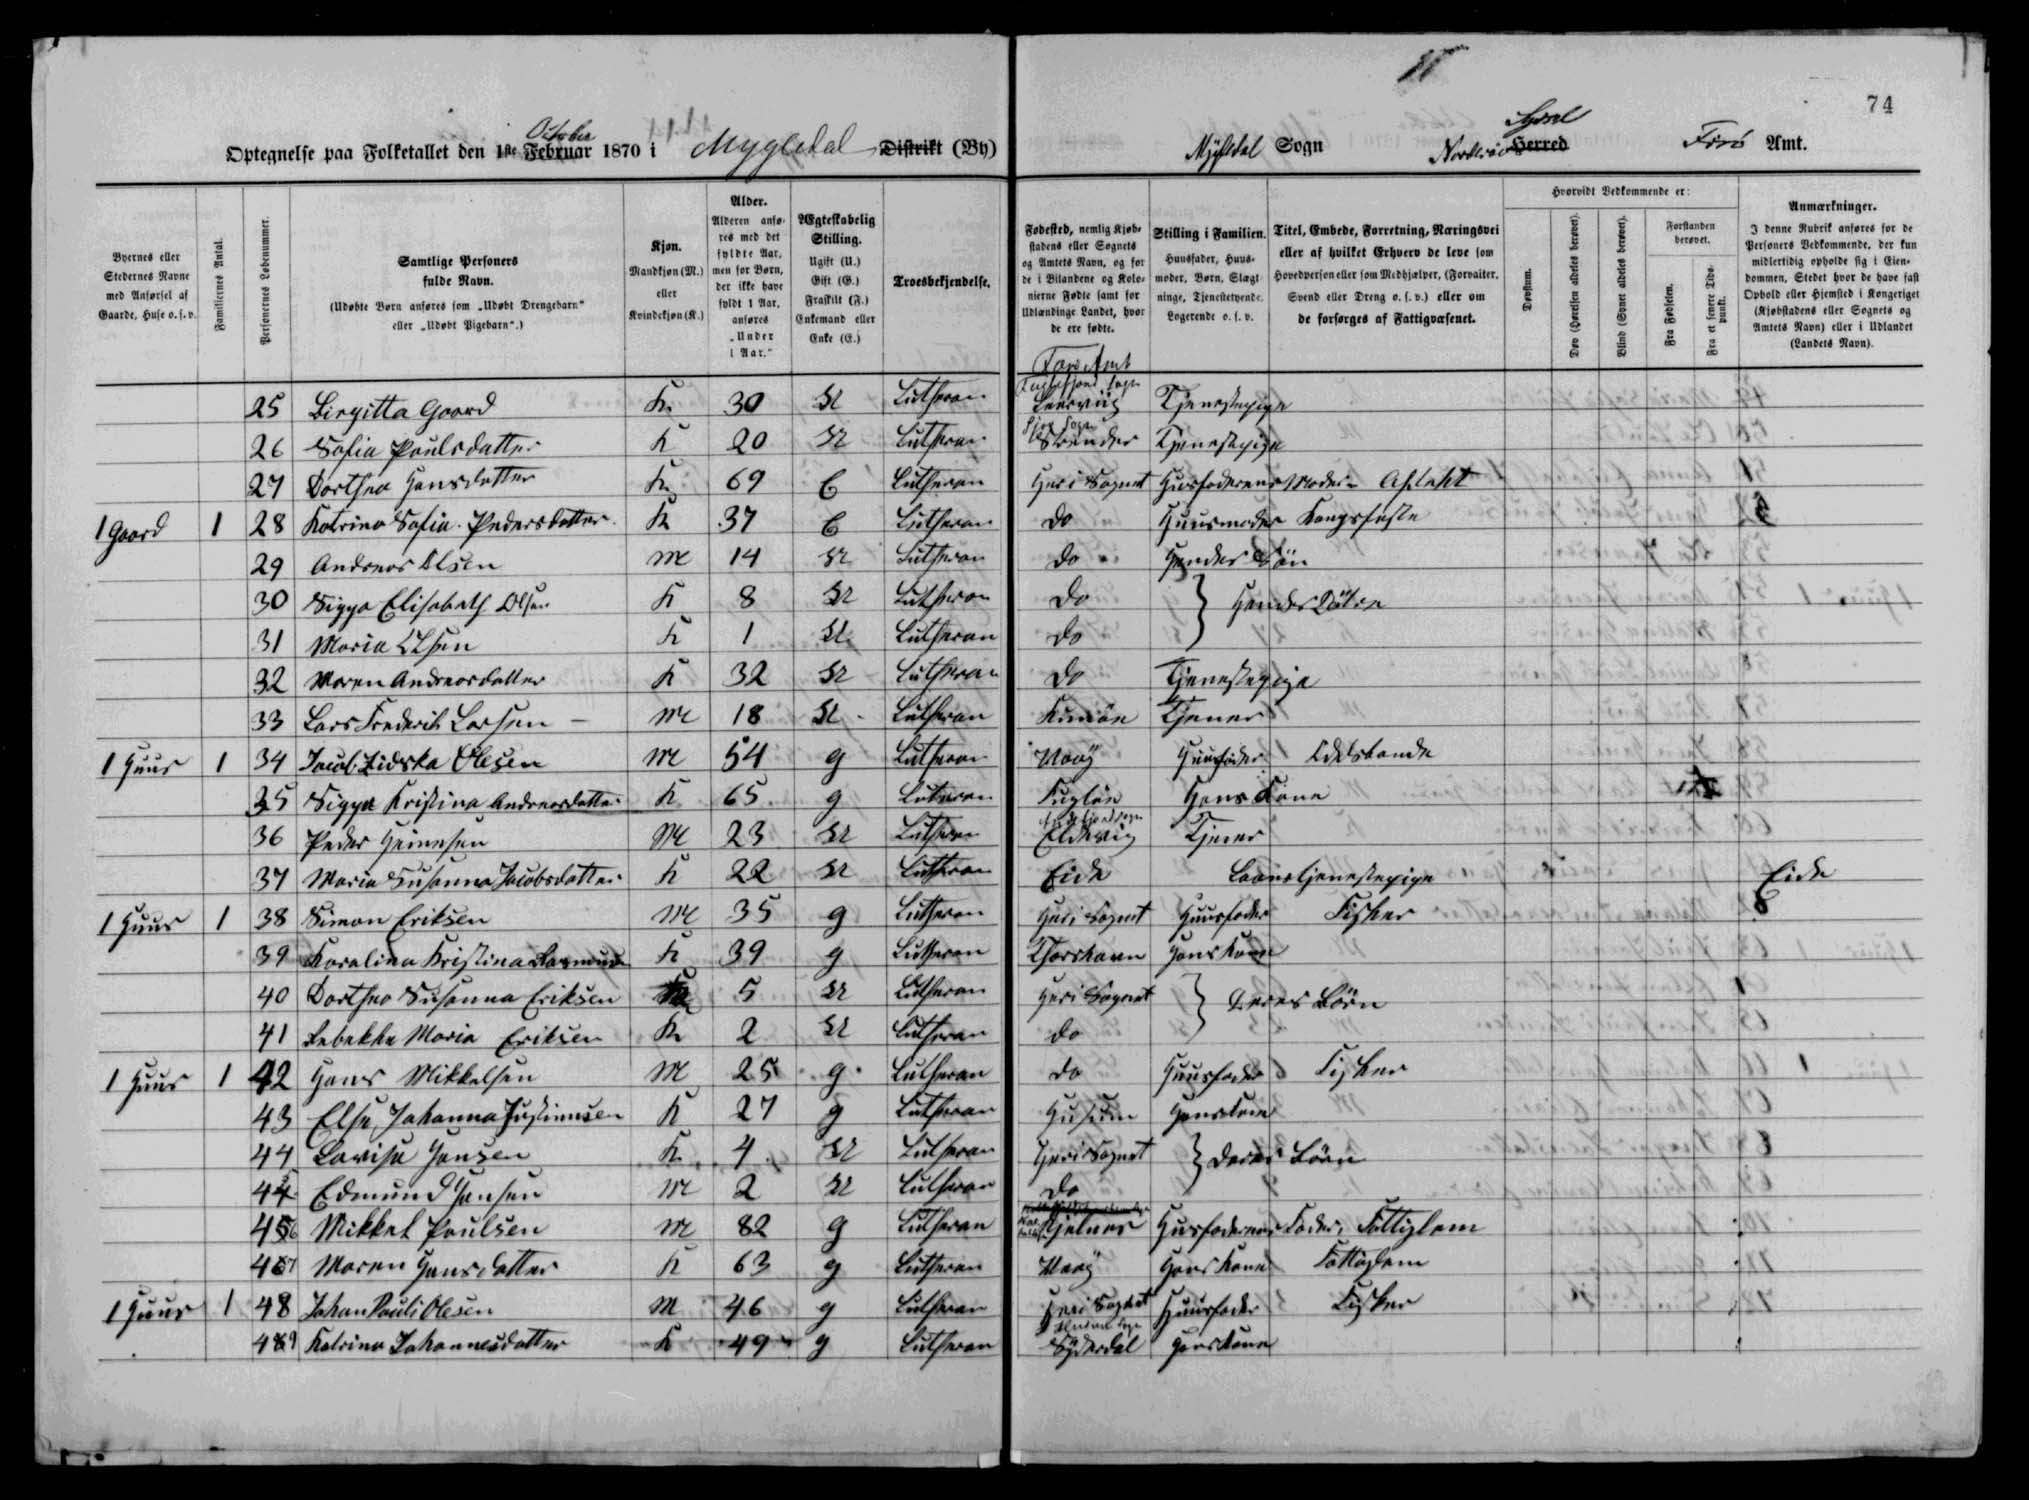 74
Optegnelse paa Folketallet den 1ste Februar October 1870 i Mygledal Distrikt (By)
Mygledal Sogn Norderöe Herred Syssel Færö Amt.
Byernes eller Stedernes Navne med Anførsel af Gaarde, Huse o. s. v.
Familiernes Antal.
Personernes Løbenummer.
Samtlige Personers fulde Navn.
(Udøbte Børn anføres som „Udøbt Drengebarn" eller „Udøbt Pigebarn".)
Kjøn.
Mandkjøn (M.) eller Kvindekjøn (K.)
Alder.
Alderen anføres med det fyldte Aar, men for Børn, der ikke have fyldt 1 Aar, anføres „Under 1 Aar."
Ægteskabelig Stilling.
Ugift (U.) Gift (G.) Fraskilt (F.) Enkemand eller Enke (E.)
Troesbekjendelse.
Fødested, nemlig Kjøbstadens eller Sognets og Amtets Navn, og for de i Bilandene og Kolonierne Fødte samt for Udlændinge Landet, hvor de ere fødte.
Stilling i Familien.
Huusfader, Huusmoder, Børn, Slægtninge, Tjenestetyende, Logerende o. s. v.
Titel, Embede, Forretning, Næringsvei eller af hvilket Erhverv de leve som Hovedperson eller som Medhjælper, (Forvalter, Svend eller Dreng o. s. v.) eller om de forsørges af Fattigvæsenet.
Hvorvidt Vedkommende er:
Døvstum.
Døv (Hørelsen aldeles berøvet).
Blind (Synet aldeles berøvet).
Forstanden berøvet.
Fra Fødselen.
Fra et senere Tidspunkt.
Anmærkninger.
I denne Rubrik anføres for de Personers Vedkommende, der kun midlertidig opholde sig i Eiendommen, Stedet hvor de have fast Ophold eller Hjemsted i Kongeriget (Kjøbstadens eller Sognets og Amtets Navn) eller i Udlandet (Landets Navn).
Færö Amt
25 Birgitta Gaard K 30 U Lutheran Fuglefjord Sogn Leervig Tjenestepige
26 Sofia Poulsdatter K 20 U Lutheran Sogn Strender Tjenestepige
27 Dorthea Hansdatter K 69 E Lutheran Her i Sognet Husfaderens Moder Aftægt
1 Gaard 1 28 Katrina Sofia Pedersdatter K 37 E Lutheran do Huusmoder Kongsfæste
29 Andreas Olsen M 14 U Lutheran do Hendes Sön
30 Sigga Elisabeth Olsen K 8 U Lutheran do } Hendes Dötre
31 Maria Olsen K 1 U Lutheran do
32 Maren Andreasdatter K 32 U Lutheran do Tjenestepige
33 Lars Frederik Larsen M 18 U Lutheran Kunöe Tjener
1 Huus 1 34 Jacob Olesen M 54 g Lutheran Waag Huusfader
35 Sigga Kristina Andreasdatter K 65 g Lutheran Fuglöe Hans Kone 1
36 Peder Heinesen M 23 U Lutheran Fuglefjord Sogn Eldevig Tjener
37 Maria Susanna Jacobsdatter K 22 U Lutheran Eide Laanstjenestepige Eide
1 Huus 1 38 Simon Eriksen M 35 g Lutheran Her i Sognet Huusfader Fisker
39 Karalina Kristina K 39 g Lutheran Thorshavn Hans Kone
40 Dorthea Susanna Eriksen K 5 U Lutheran Her i Sognet } Deres Börn
41 Rebekka Maria Eriksen K 2 U Lutheran do
1 Huus 1 42 Hans Mikkelsen M 25 g Lutheran do Huusfader Fisker
43 Else Johanna Justinusen K 27 g Lutheran Husum Hans Kone
44 Lovisa Hansen K 4 U Lutheran Her i Sognet } Deres Börn
45 Edmund Hansen M 2 U Lutheran do
46 Mikkel Poulsen M 82 g Lutheran Kjelnes Husfaderens Fader, Fattiglem
47 Maren Hansdatter K 63 g Lutheran Waag Hans Kone Fattiglem
1 Huus 1 48 Johan Pauli Olesen M 46 g Lutheran Her i Sognet Huusfader Fisker
49 Katrina Johannesdatter K 49 g Lutheran Syderdal Hans Kone